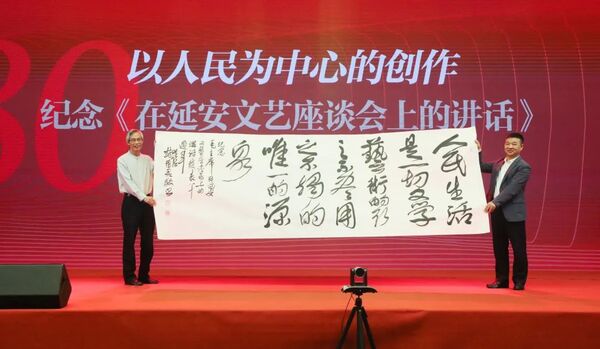 80
以人民为中心的创作
纪念《在延安文艺座谈会上的讲话》
人民生活
是一切文学
藝術的取
之不尽用
之不竭的
唯一的源
泉
纪念